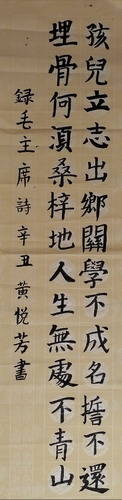 孩兒立志出鄉關學不成名誓不還
埋骨何須桑梓地人生無處不青山
録毛主席詩辛丑黄悦芳書